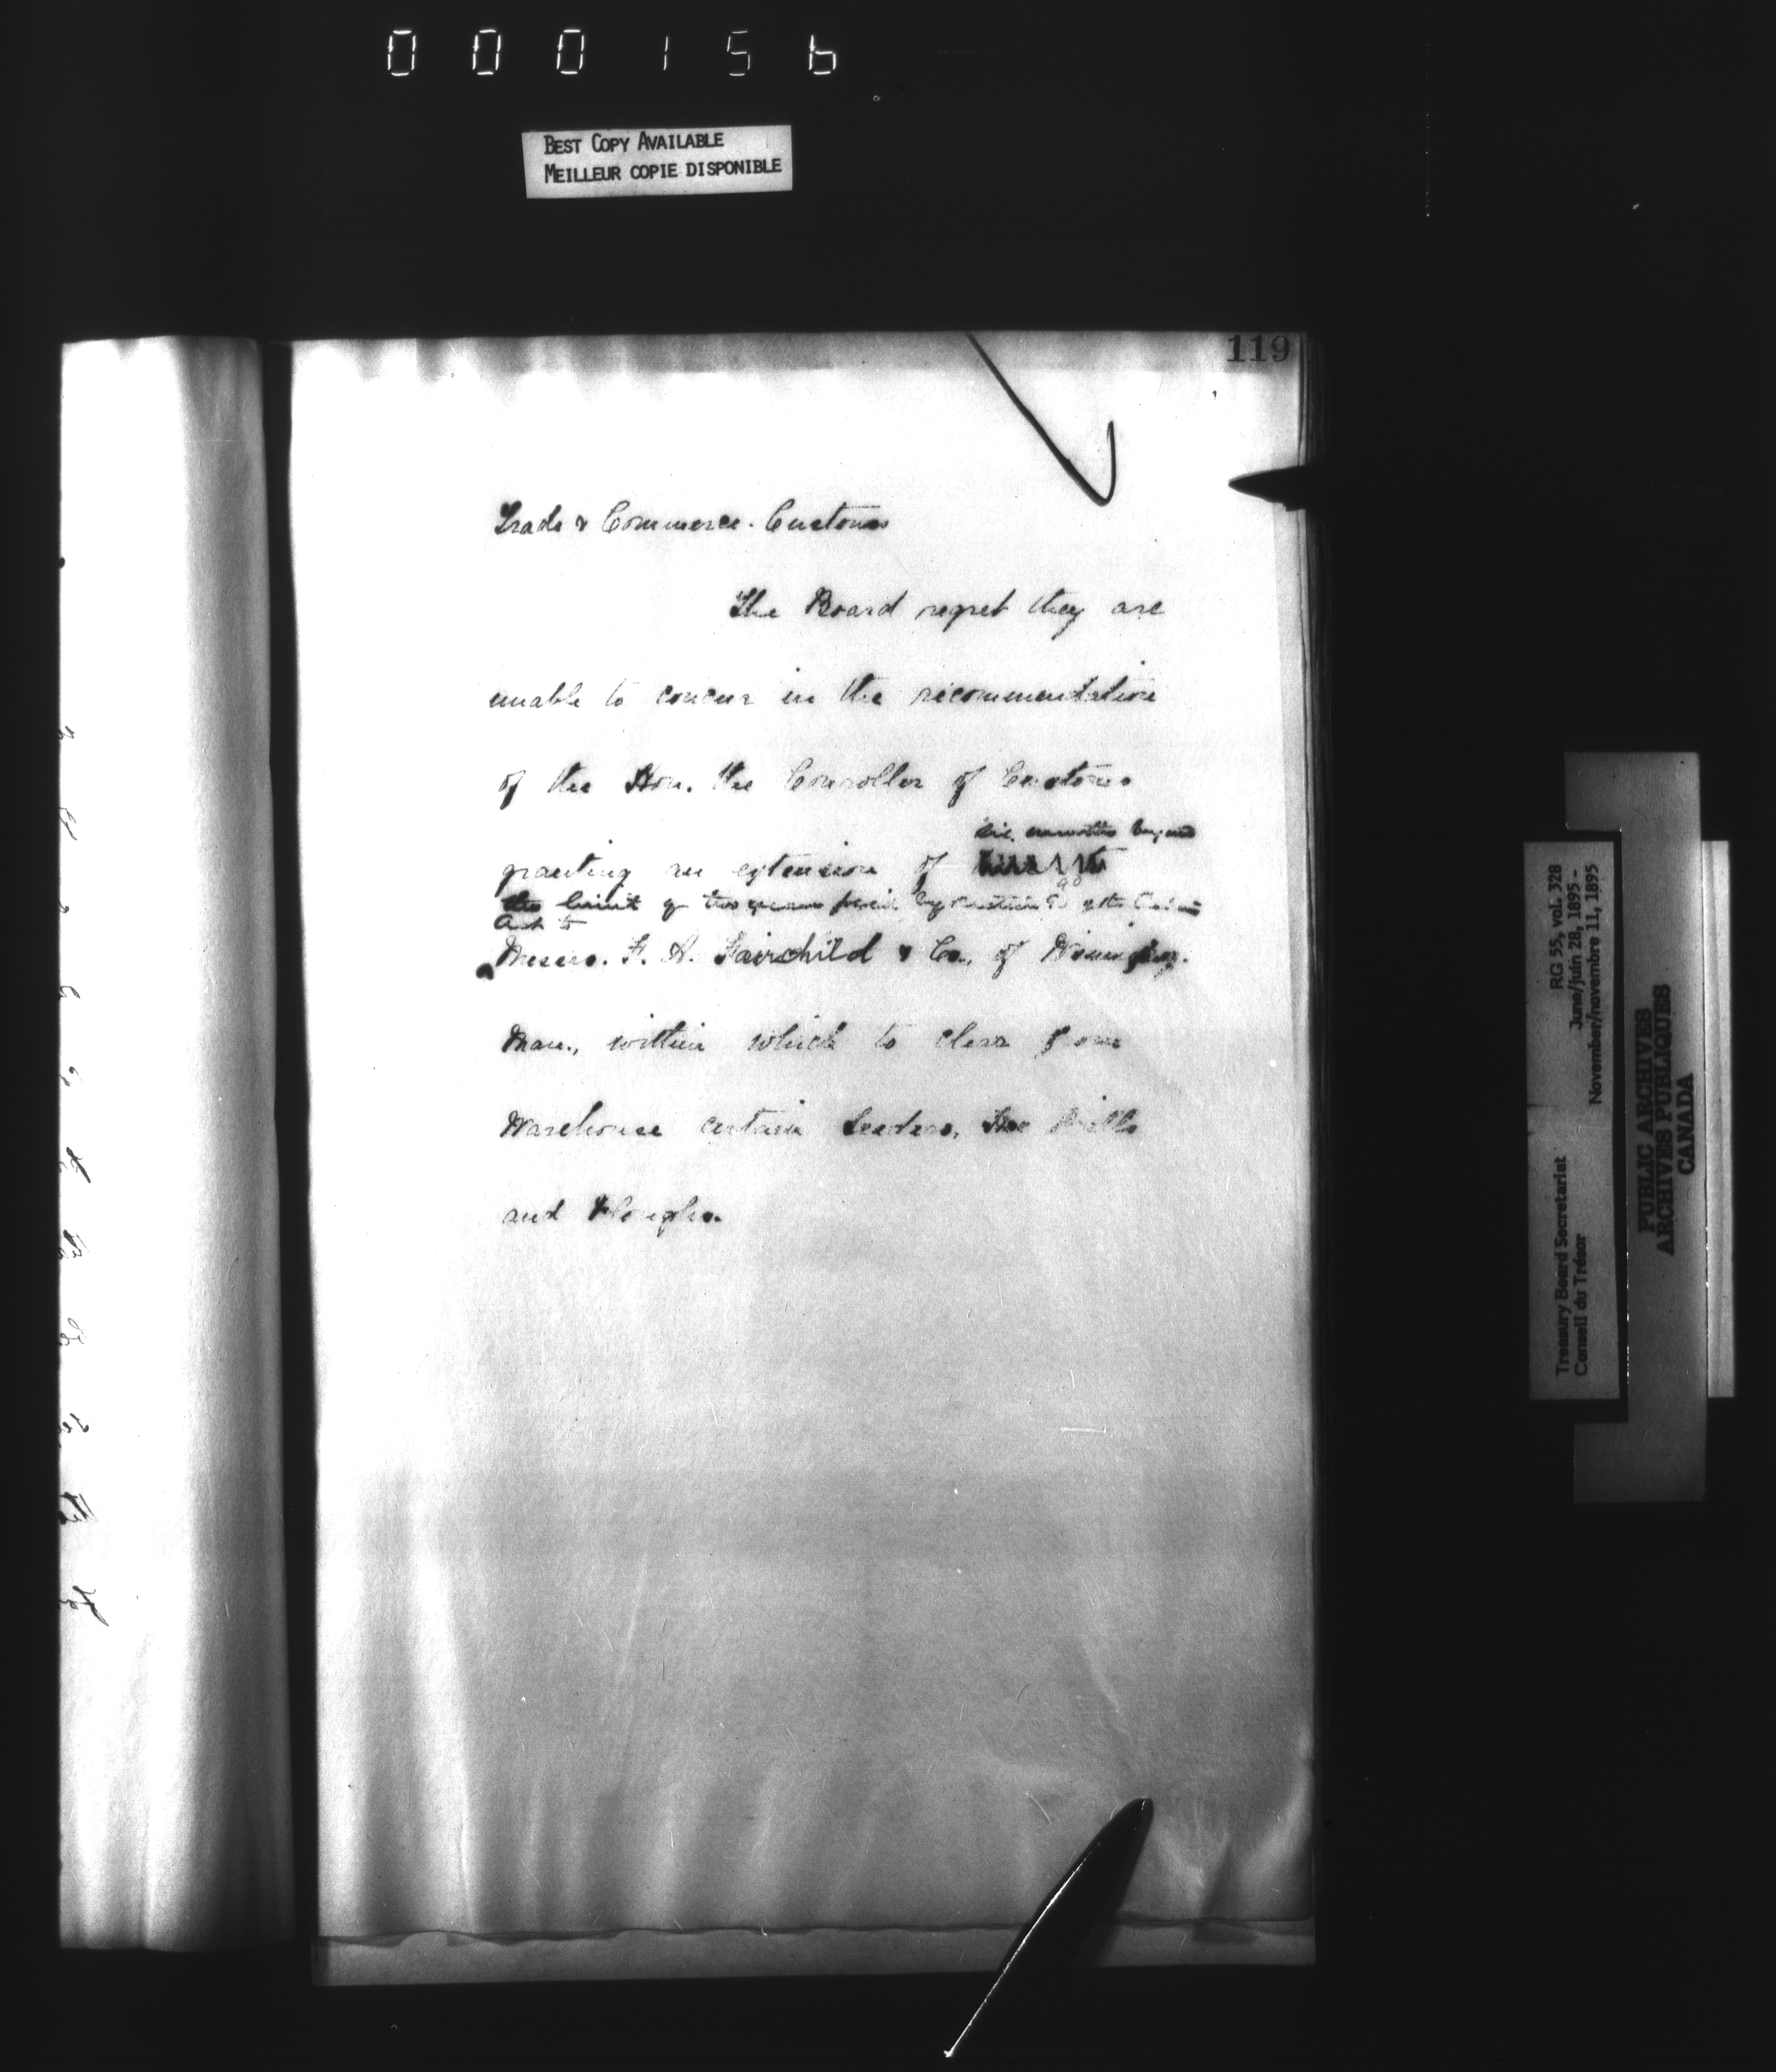 000156
BEST COPY AVAILABLE
MEILLEUR COPIE DISPONIBLE
119
Trade & Commerce. Customs
The Board regret they are
unable to concur in the recommendation
of the Hon. the Conroller of Customs
six months beyond
granting an extension of
the limit of two years by section 90 of the Customs
Act to
Messrs. F. A. Fairchild & Co., of Winnipeg.
Man., within which to clear from
Warehouse certain Seeders, Drills
and Ploughs.
RG 55, vol. 328
June/juin 28, 1895 -
November/novembre 11, 1895
Treasury Board Secretariat
Conseil du Trésor
PUBLIC ARCHIVES
ARCHIVES PUBLIQUES
CANADA